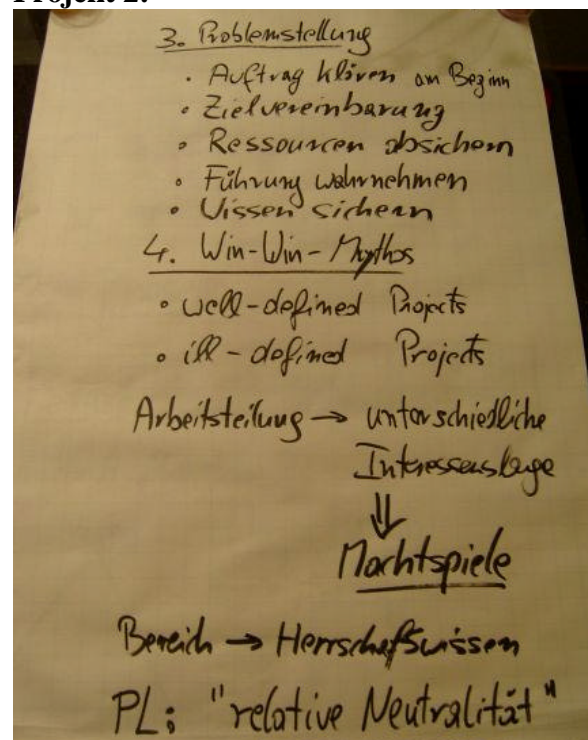 Projekt 2:
3. Problemstellung
• Auftrag klären am Beginn
• Zielvereinbarung
• Ressourcen absichern
• Führung wahrnehmen
• Wissen sichern
4. Win-Win-Mythos
• well-defined Projects
• ill-defined Projects
Arbeitsteilung → unterschiedliche
Interessenslage
⇓
Machtspiele
Bereich → Herrschafswissen
PL: "relative Neutralität"